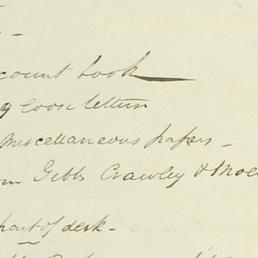 count book
loose letters
Miscellaneous papers -
Gibbs Crawley &
part of desk -